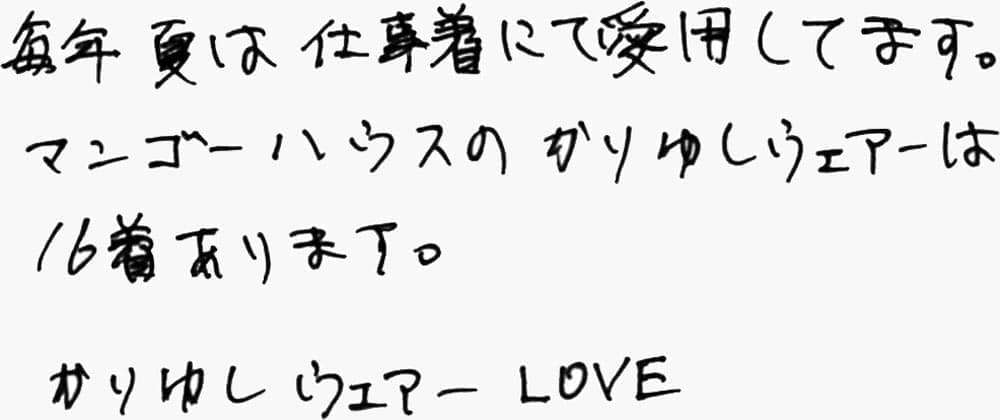 毎年夏は仕事着にて愛用してます。
マンゴーハウスのかりゆしウェアーは
16着あります。
かりゆしウェアー LOVE